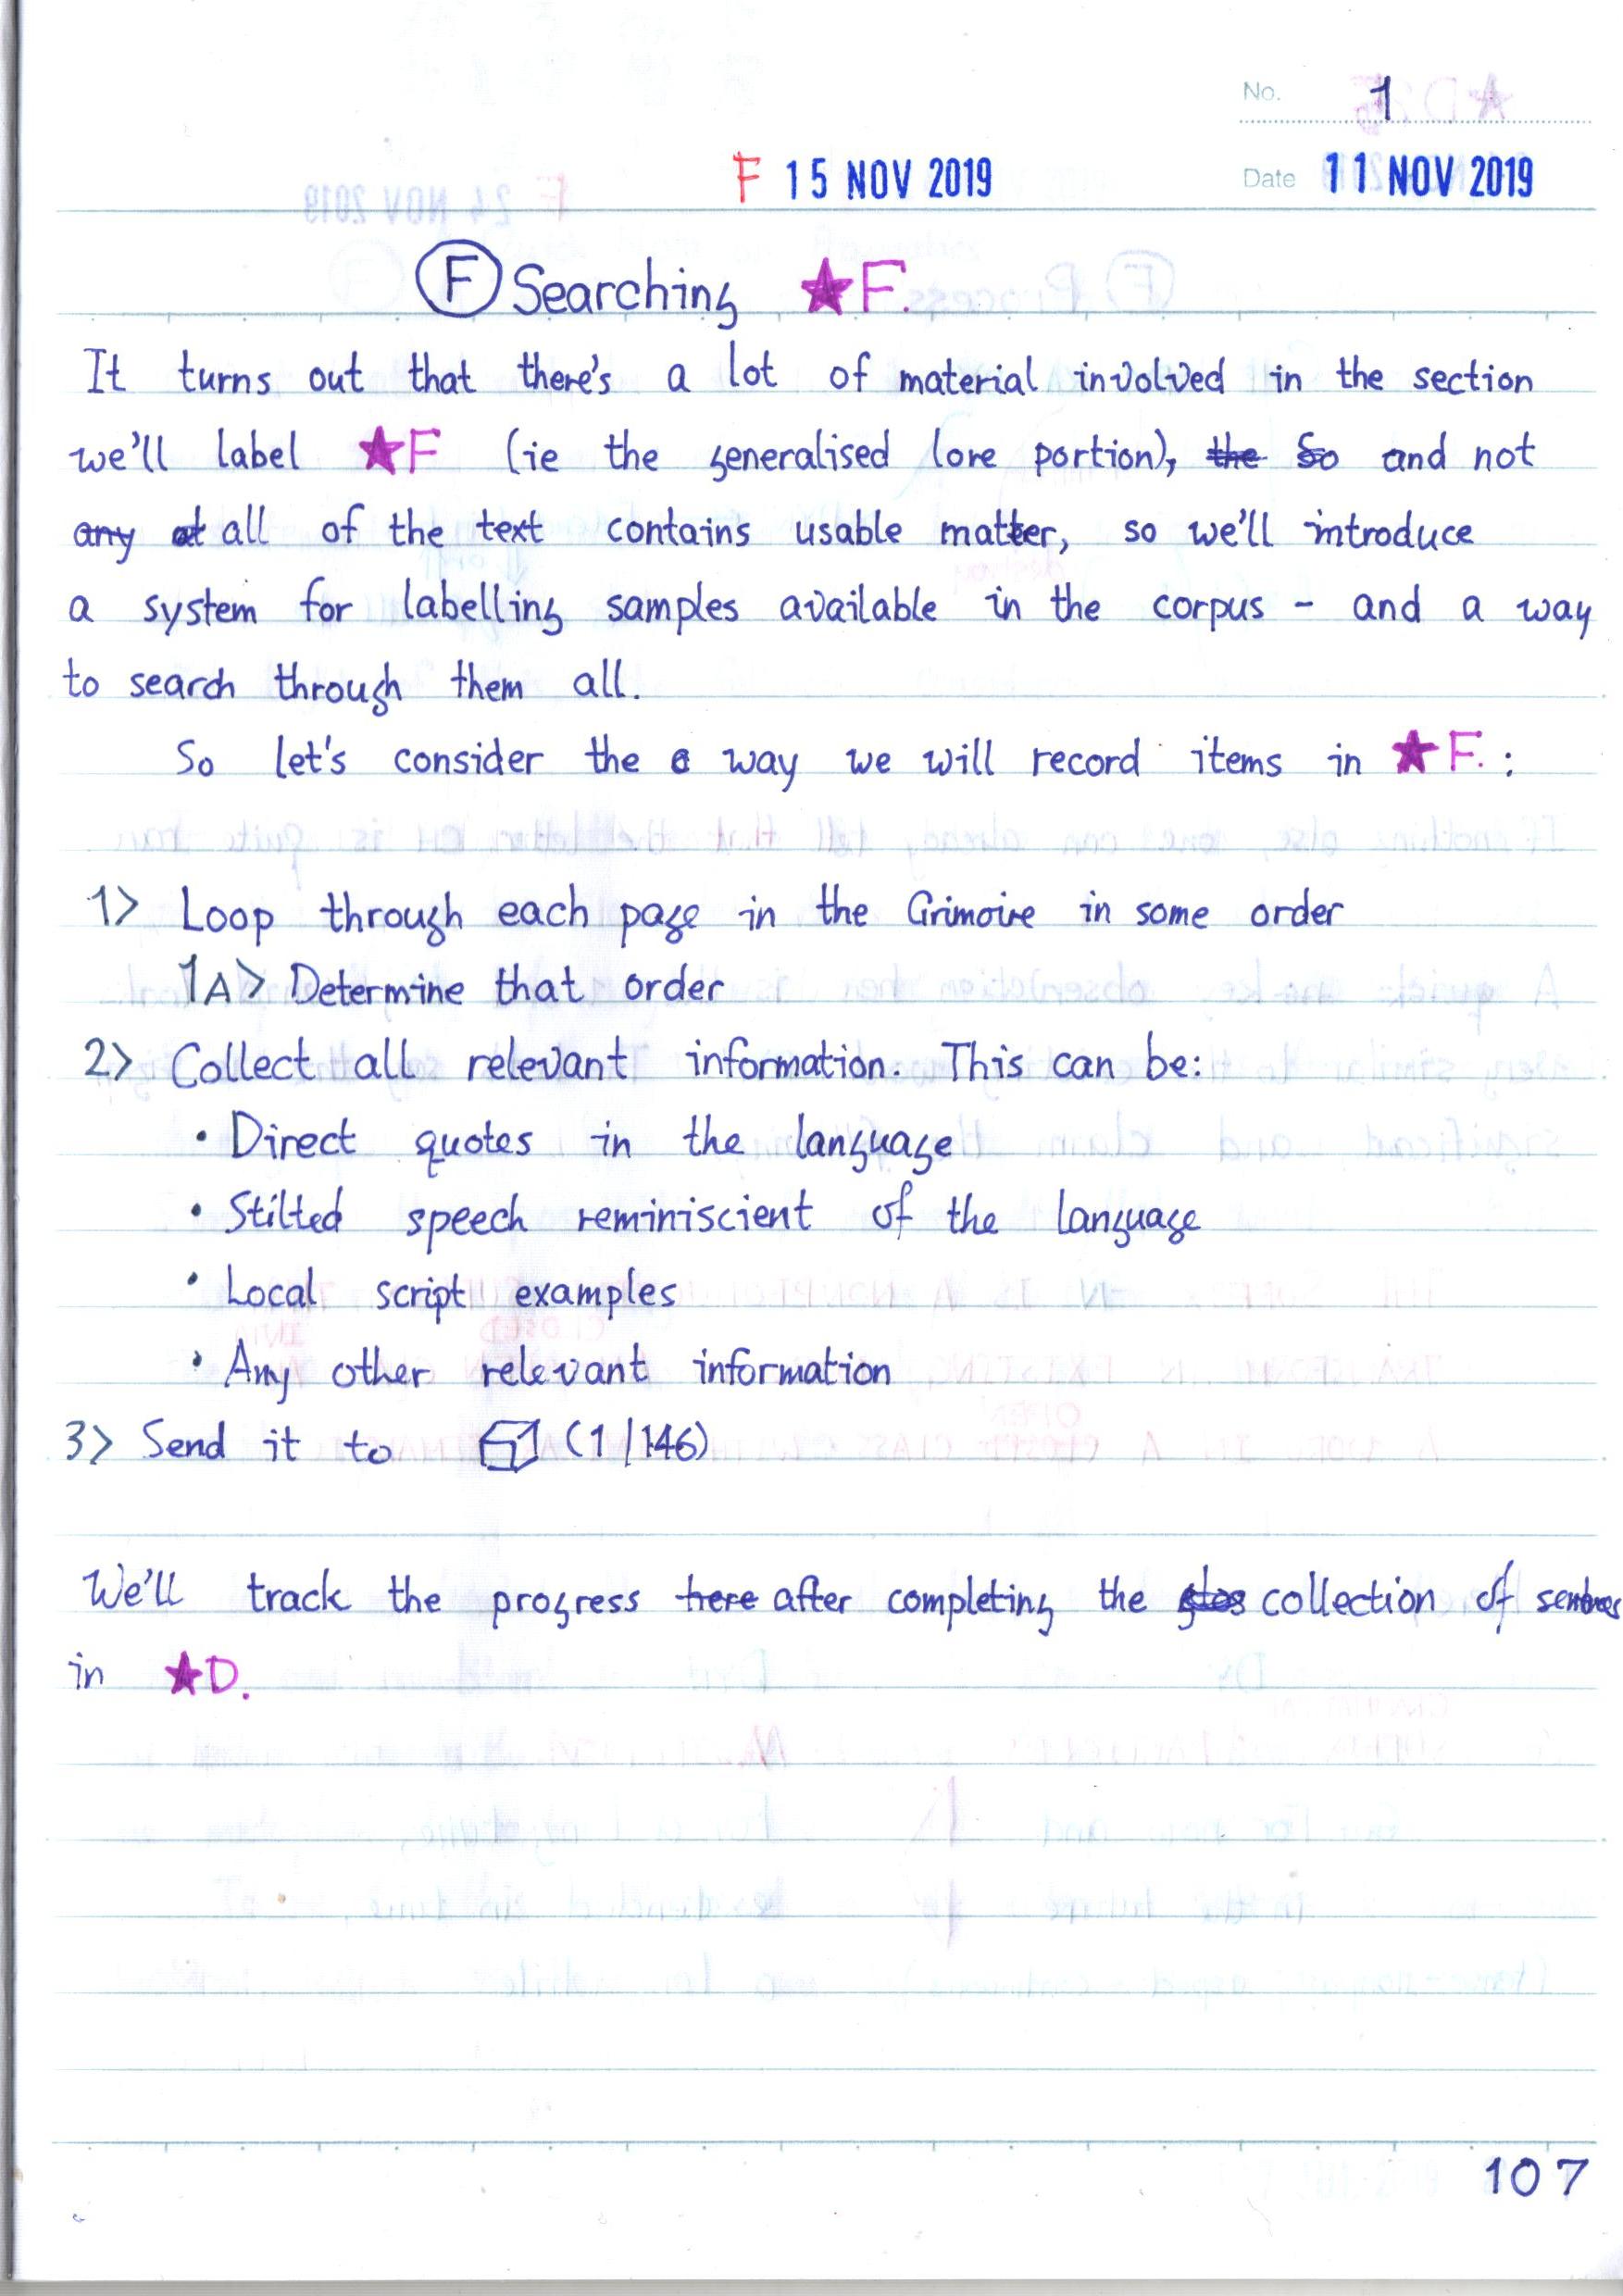 No. 1
F 15 NOV 2019 Date 11 NOV 2019
F Searching ★F.
It turns out that there's a lot of material involved in the section
we'll label ★F (ie the generalised lore portion), the So and not
any at all of the text contains usable matter, so we'll introduce
a system for labelling samples available in the corpus - and a way
to search through them all.
So let's consider the way we will record items in ★F. :
1> Loop through each page in the Grimoire in some order
1A> Determine that order
2> Collect all relevant information. This can be:
• Direct quotes in the language
• Stilted speech reminiscient of the language
• Local script examples
• Any other relevant information
3> Send it to (1/146)
We'll track the progress here after completing the collection of
in ★D.
107